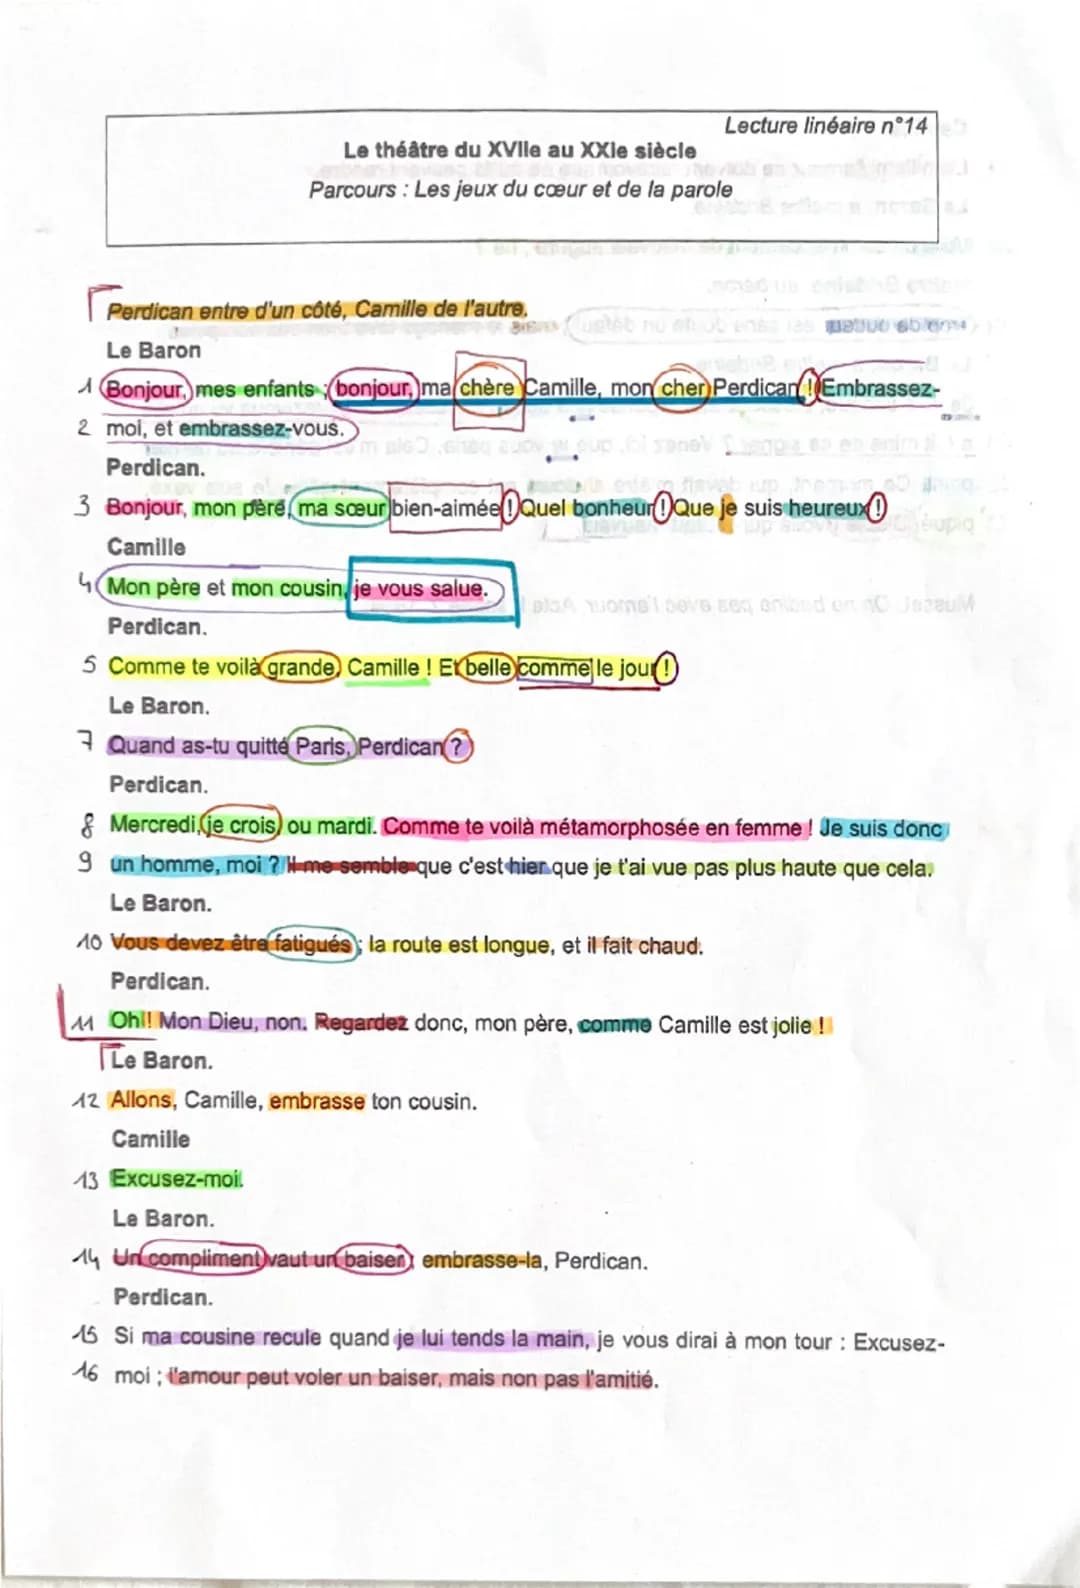 Lecture linéaire n°14
Le théâtre du XVIIe au XXIe siècle
Parcours : Les jeux du cœur et de la parole
Perdican entre d'un côté, Camille de l'autre.
Le Baron
1 Bonjour, mes enfants ; bonjour, ma chère Camille, mon cher Perdican ! Embrassez-
2 moi, et embrassez-vous.
Perdican.
3 Bonjour, mon père, ma sœur bien-aimée ! Quel bonheur ! Que je suis heureux !
Camille
4 Mon père et mon cousin, je vous salue.
Perdican.
5 Comme te voilà grande, Camille ! Et belle comme le jour !
Le Baron.
7 Quand as-tu quitté Paris, Perdican ?
Perdican.
8 Mercredi, je crois, ou mardi. Comme te voilà métamorphosée en femme ! Je suis donc
9 un homme, moi ? Il me semble que c'est hier que je t'ai vue pas plus haute que cela.
Le Baron.
10 Vous devez être fatigués ; la route est longue, et il fait chaud.
Perdican.
11 Oh ! Mon Dieu, non. Regardez donc, mon père, comme Camille est jolie !
Le Baron.
12 Allons, Camille, embrasse ton cousin.
Camille
13 Excusez-moi.
Le Baron.
14 Un compliment vaut un baiser ; embrasse-la, Perdican.
Perdican.
15 Si ma cousine recule quand je lui tends la main, je vous dirai à mon tour : Excusez-
16 moi ; l'amour peut voler un baiser, mais non pas l'amitié.